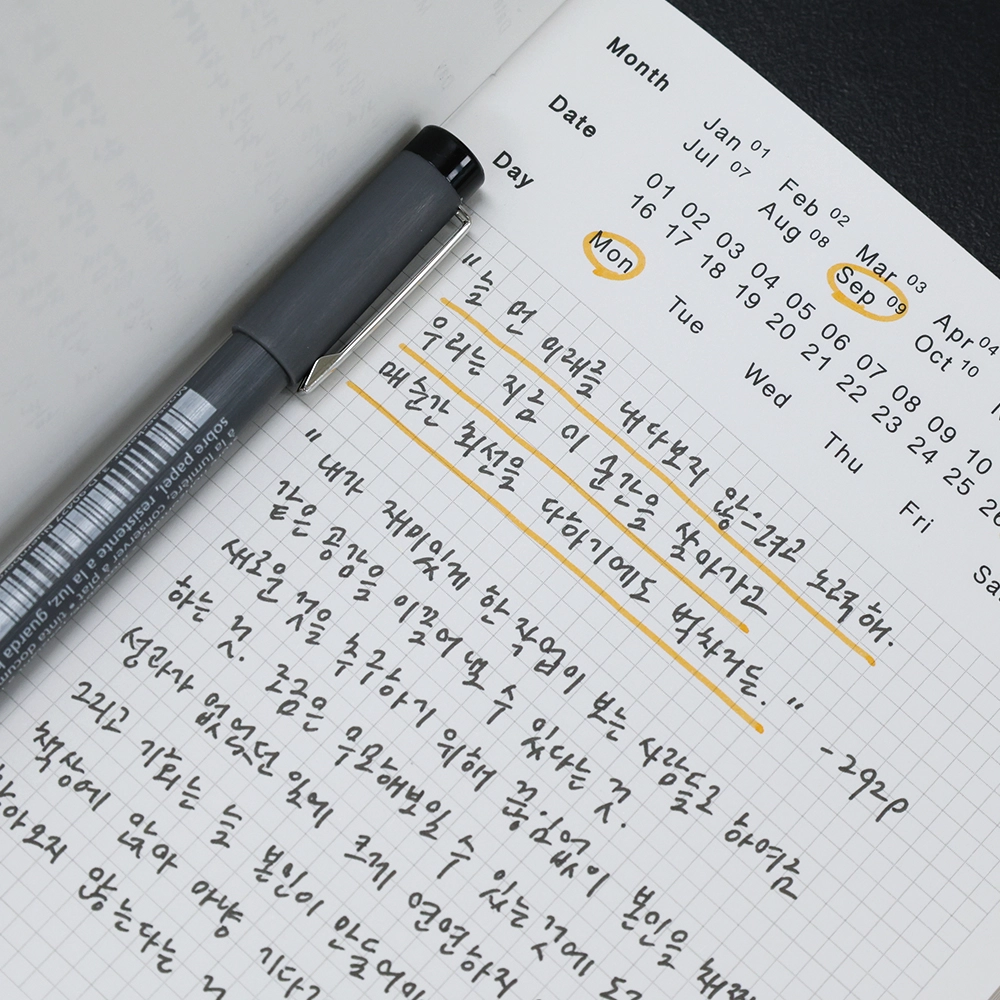 Month
Jan 01 Feb 02 Mar 03 Apr 04
Date
Jul 07 Aug 08 Sep 09 Oct 10
Day
01 02 03 04 05 06 07 08 09 10
16 17 18 19 20 21 22 23 24 25 26
Mon Tue Wed Thu Fri
"늘 먼 미래를 내다보지 않으려고 노력해.
우리는 지금 이 순간을 살아가고
매순간 최선을 다하기에도 벅차거든."
-292p
"내가 재미있게 한 작업이 보는 사람들로 하여금
같은 공감을 이끌어 낼 수 있다는 것.
새로운 것을 추구하기 위해 끊임없이 본인을
하는 것. 조금은 무모해보일 수 있는 것에
성과가 없었던 일에 크게 연연하지
그리고 기회는 늘 본인이 만들어
책상에 앉아 마냥
않는다는
sobre papel, resistente a la luz, guarda
à la lumière, conserver à plat • tinta